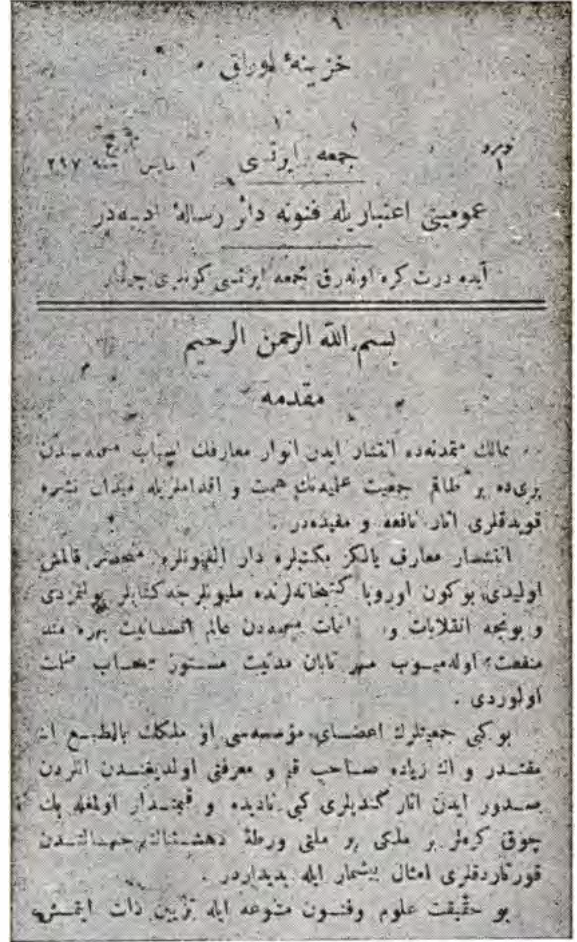 ١
خزينهٔ اوراق
نومرو
١
جمعه ايرتسى
تاريخ
١ مايس سنه ٢٩٧
عموميتى اعتباريله فنونه دائر رسالهٔ ادبيه‌در
آيده درت كره اوله‌رق جمعه ايرتسى كونلرى چيقار
بسم الله الرحمن الرحيم
مقدمه
ممالك متمدنه‌ده انتشار ايدن انوار معارفك اسباب مهمه‌سندن
برى‌ده بر طاقم جمعيت علميه‌نك همت و اقداملريله ميدان نشره
قويدقلرى آثار نافعه و مفيده‌در .
انتشار معارف يالكز مكتبلره دار الفنونلره منحصر قالمش
اولیدى بوكون اوروپا كتبخانه‌لرنده مليونلرجه كتابلر بولنمزدى
و بونجه انقلابات و مهمه‌دن عالم انسانيت بهره مند
منفعت اوله‌ميوب مهر تابان مدنيت مستور سحاب ظلمت
اولوردى .
بوكبى جمعيتلرك اعضاى مؤسسه‌سى او ملكك بالطبع اك
مقتدر و اك زياده صاحب قلم و معرفتى اولديغندن انلردن
صدور ايدن آثار كنديلرى كبى ناديده و قيمتدار اولمغله پك
چوق كره‌لر بر ملكى بر ملتى ورطهٔ دهشتناك جهالتدن
قورتاردقلرى امثال بيشمار ايله بديداردر .
بو حقيقت علوم وفنون متنوعه ايله تزيين ذات ايتمش